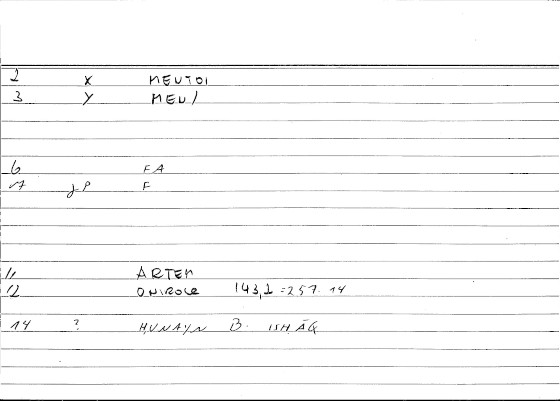 2 X MEUTOI
3 Y MEU/
6 FA
7 gP F
11 ARTEM
12 ONIROCR 143,2 = 257.14
14 ? ḤUNAYN B. ISḤĀQ